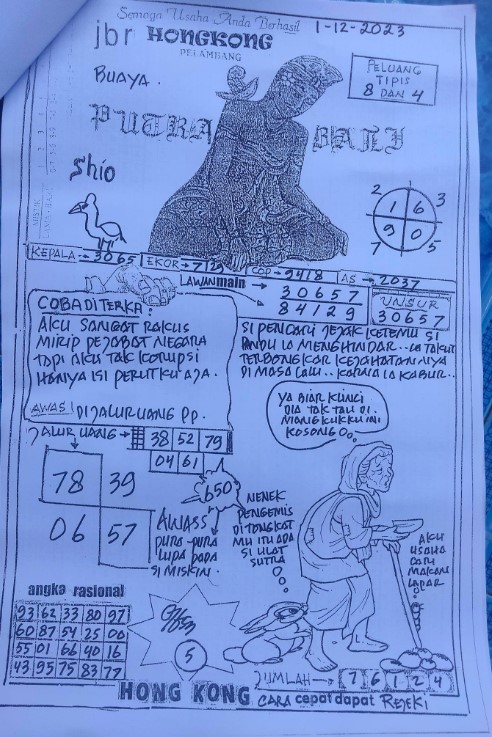 Semoga Usaha Anda Berhasil
1-12-2023
jbr HONGKONG
PELAMBANG
BUAYA.
PELUANG
TIPIS
8 DAN 4
PUTRA BALI
Shio
2 3
1 6
9 0
7 5
KEPALA → 3065 EKOR → 7129 COP → 9418 AS → 2037
LAWAN main → 30657
84129
UNSUR
30657
COBA DITERKA:
AKU SANGAT RAKUS
MIRIP PEJABAT NEGARA
TAPI AKU TAK KORUPSI
HANYA ISI PERUTKU AJA.
SI PENCARI JEJAK KETEMU SI
PANDU IA MENGHINDAR.. IA TAKUT
TERBONGKAR KEJAHATANNYA
DI MASA LALU.. KARNA IA KABUR..
AWAS! DIJALUR UANG PP.
YA BIAR KUNCI
DIA TAK TAU DI.
MANGKUKKU INI
KOSONG
JALUR UANG → 38 52 79
04 61
650
78 39
06 57
AWASS
PURA-PURA
LUPA PADA
SI MISKIN.
NENEK
PENGEMIS
DITONGKAT
MU ITU ADA
SI ULAT
SUTRA
AKU
USAHA
CARI
MAKAN
LAPAR
angka rasional
93 62 33 80 97
60 87 54 25 00
55 01 66 40 16
43 95 75 83 77
5
JUMLAH → 7 6 1 2 4
HONG KONG CARA cepat dapat REJEKI